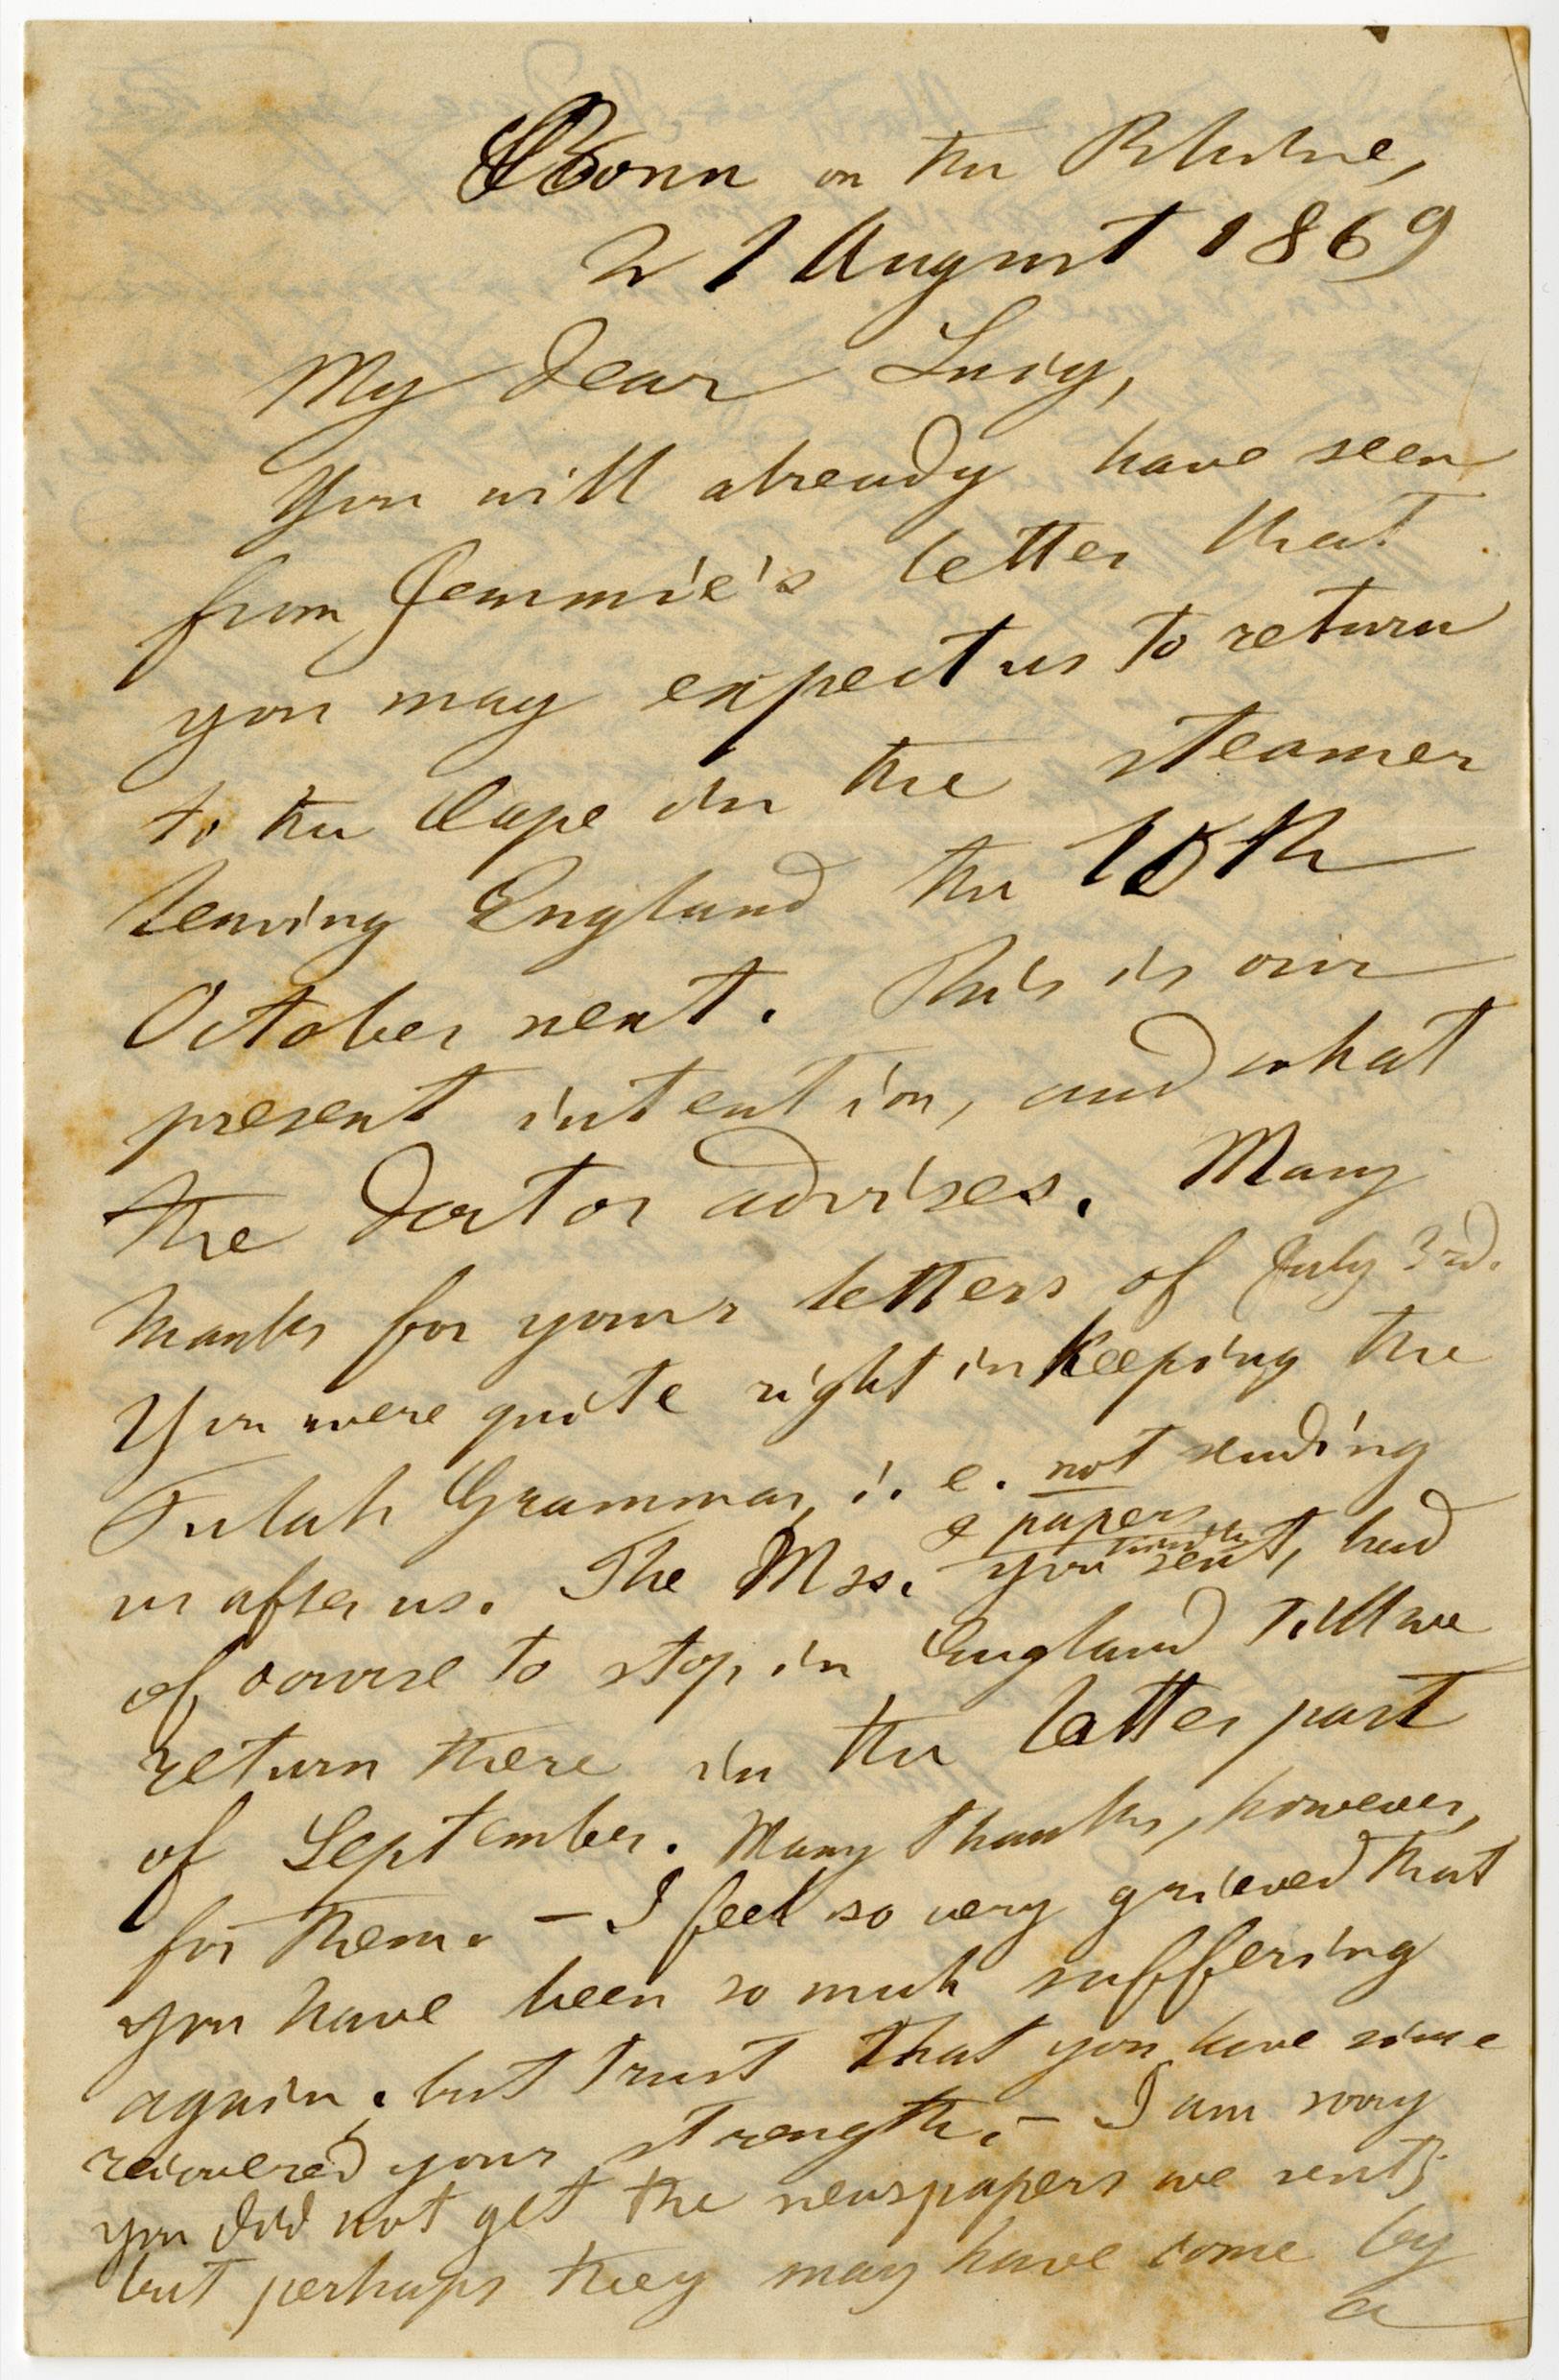 Bonn on the Rhine,
21 August 1869
My dear Lucy,
You will already have seen
from Jemmie's letter that
you may expect us to return
to the Cape in the steamer
leaving England the 10th
October next. This is our
present intention, and what
the Doctor advises. Many
thanks for your letters of July 3rd.
You were quite right in keeping the
Fulah Grammar, i. e. not sending
& papers
it after us. The Mss. you kindly sent, had
of course to stop in England till we
return there in the latter part
of September. Many thanks, however,
for them. – I feel so very grieved that
you have been so much suffering
again; but trust that you have since
recovered your strength. – I am sorry
you did not get the newspapers we sent;
but perhaps they may have come by
a